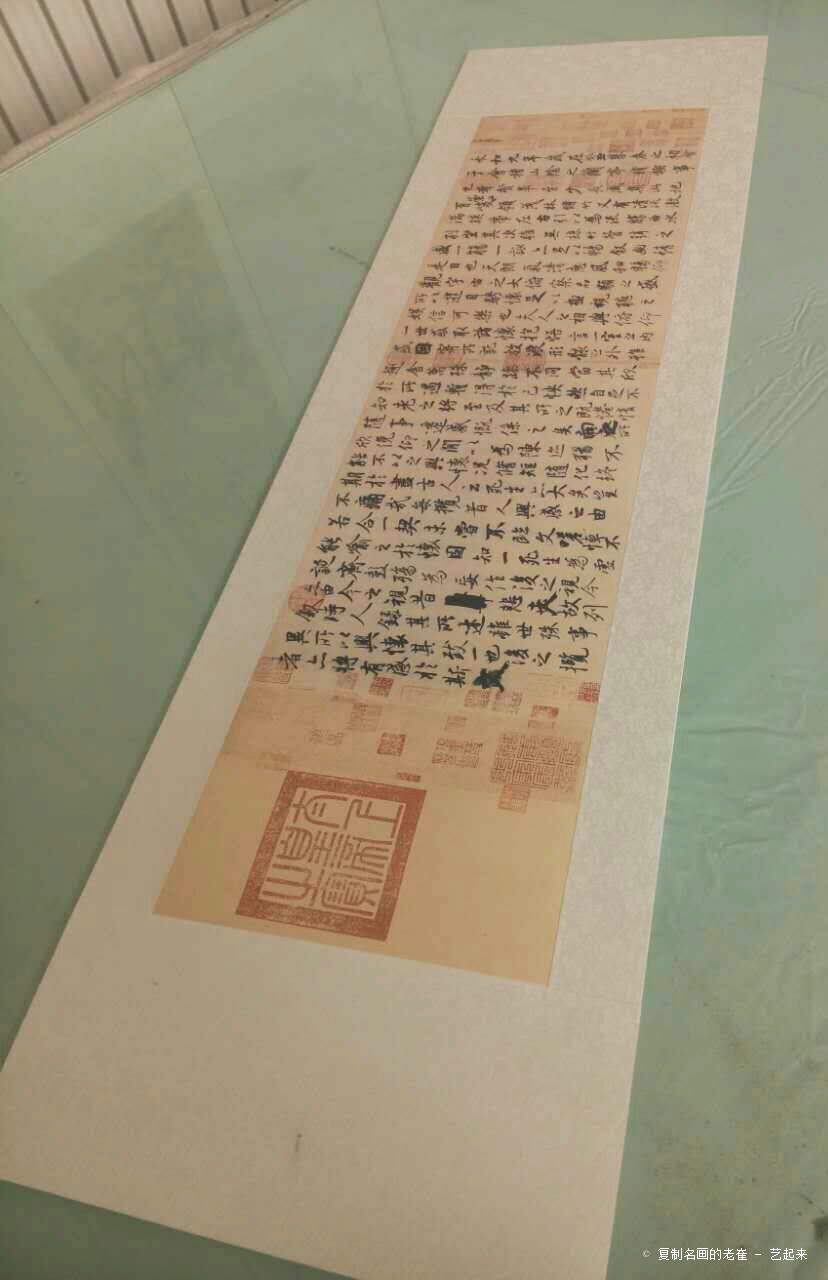 永和九年歲在癸丑暮春之初會
于會稽山陰之蘭亭脩稧事
也群賢畢至少長咸集此地
有崇山峻領茂林脩竹又有清流激
湍暎帶左右引以為流觴曲水
列坐其次雖無絲竹管弦之
盛一觴一詠亦足以暢敘幽情
是日也天朗氣清惠風和暢仰
觀宇宙之大俯察品類之盛
所以遊目騁懷足以極視聽之
娛信可樂也夫人之相與俯仰
一世或取諸懷抱悟言一室之內
或因寄所託放浪形骸之外雖
趣舍萬殊靜躁不同當其欣
於所遇暫得於己怏然自足不
知老之將至及其所之既惓情
隨事遷感慨係之矣向之所
欣俛仰之閒以為陳迹猶不
能不以之興懷況脩短隨化終
期於盡古人云死生亦大矣豈
不痛哉每攬昔人興感之由
若合一契未嘗不臨文嗟悼不
能喻之於懷固知一死生為虛
誕齊彭殤為妄作後之視今
亦由今之視昔悲夫故列
敘時人錄其所述雖世殊事
異所以興懷其致一也後之攬
者亦將有感於斯文
© 复制名画的老崔 - 艺起来